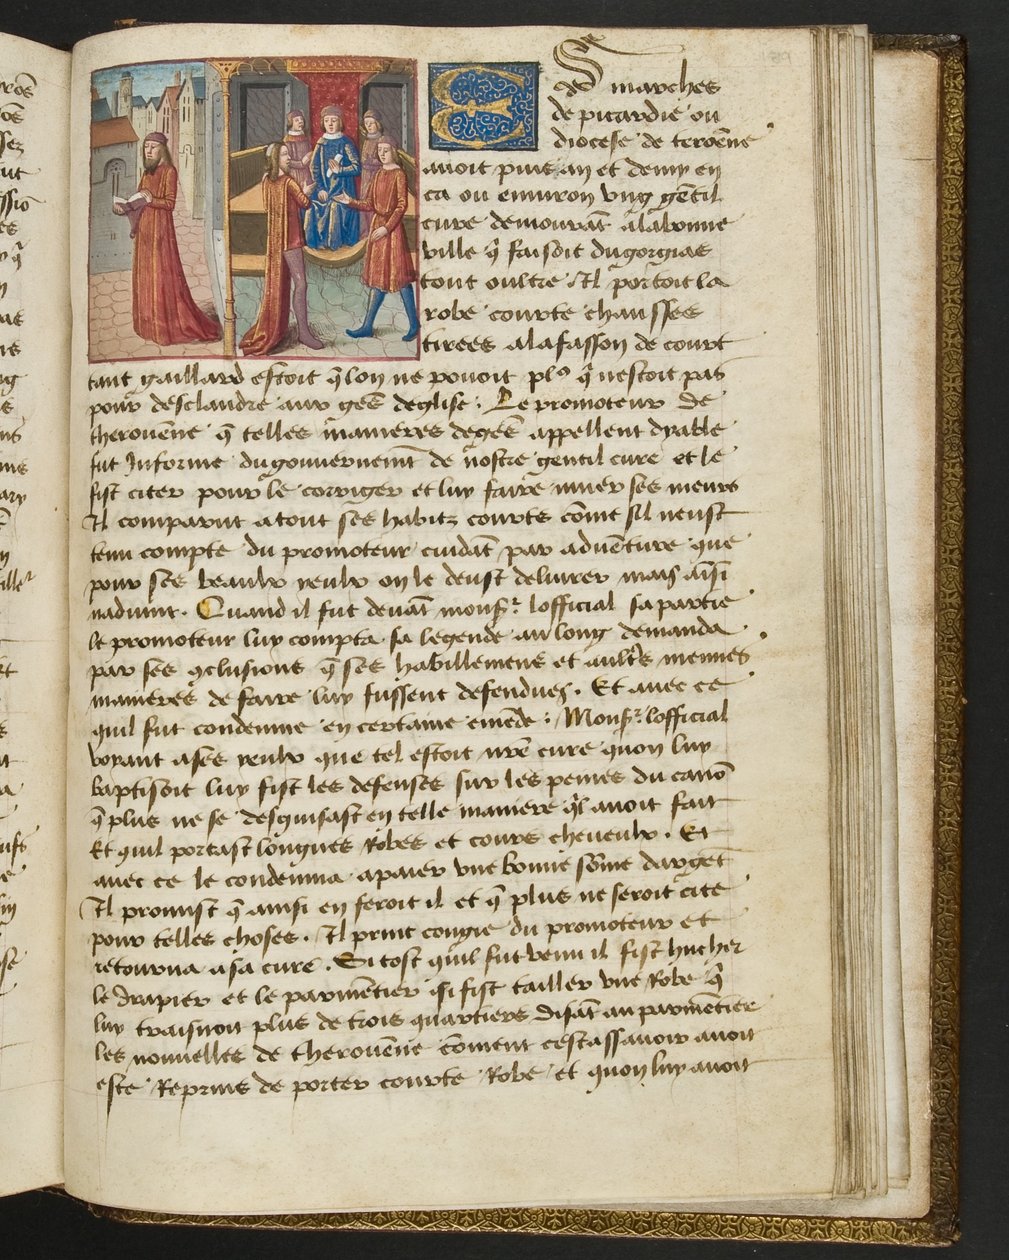 Es marches
de picardie ou
diocese de teroẽne
auoit puis an et demy en
ca ou enuiron vng gẽtil
cure demourãt alabonne
ville q̃ faisoit dugorgias
tout oultre Il portoit la
robe courte chausses
tirees alafasson de court
tant gaillard estoit q̃ lon ne pouoit plꝰ q̃ nestoit pas
pour desclandre aux gẽs deglise . Le promoteur de
therouẽne q̃ telles manieres degẽs appellent dyable
fut Informe dugouuernemẽt de nostre gentil cure et le
fist citer pour le corriger et luy faire muer ses meurs
Il comparut atout ses habitz cours cõme sil neust
tenu compte du promoteur cuidãt par aduẽture que
pour ses beaulx yeulx on le deust deliurer mais aĩsi
naduint . Quand il fut deuãt monsʳ lofficial sa partie
le promoteur luy compta sa legende au long demanda
par ses ꝯclusions q̃ ses habillemens et aultrẽs menues
manieres de faire luy fussent defendues . Et auec ce
quil fut condenne en certaine emẽde : Monsʳ lofficial
voyant ases yeulx que tel estoit nrẽ cure quon luy
baptisoit luy fist les defenses sur les peines du canõ
q̃ plus ne se desguisast en telle maniere q̃l auoit fait
Et quil portast lõgues Robes et cours cheueulx . Et
auec ce le condemna apaier vne bonne sõme dargẽt
Il promist q̃ ainsi en feroit il et q̃ plus ne seroit cite
pour telles choses . Il print congie du promoteur et
retourna asa cure . Si tost quil fut venu il fist hucher
le drapier et le parmẽtier si fist tailler vne Robe q̃
luy traisnoit plus de trois quartiers disãt au parmẽtier
les nouuelles de therouẽne cõment cestassauoir auoit
este Reprins de porter courte Robe et quon luy auoit